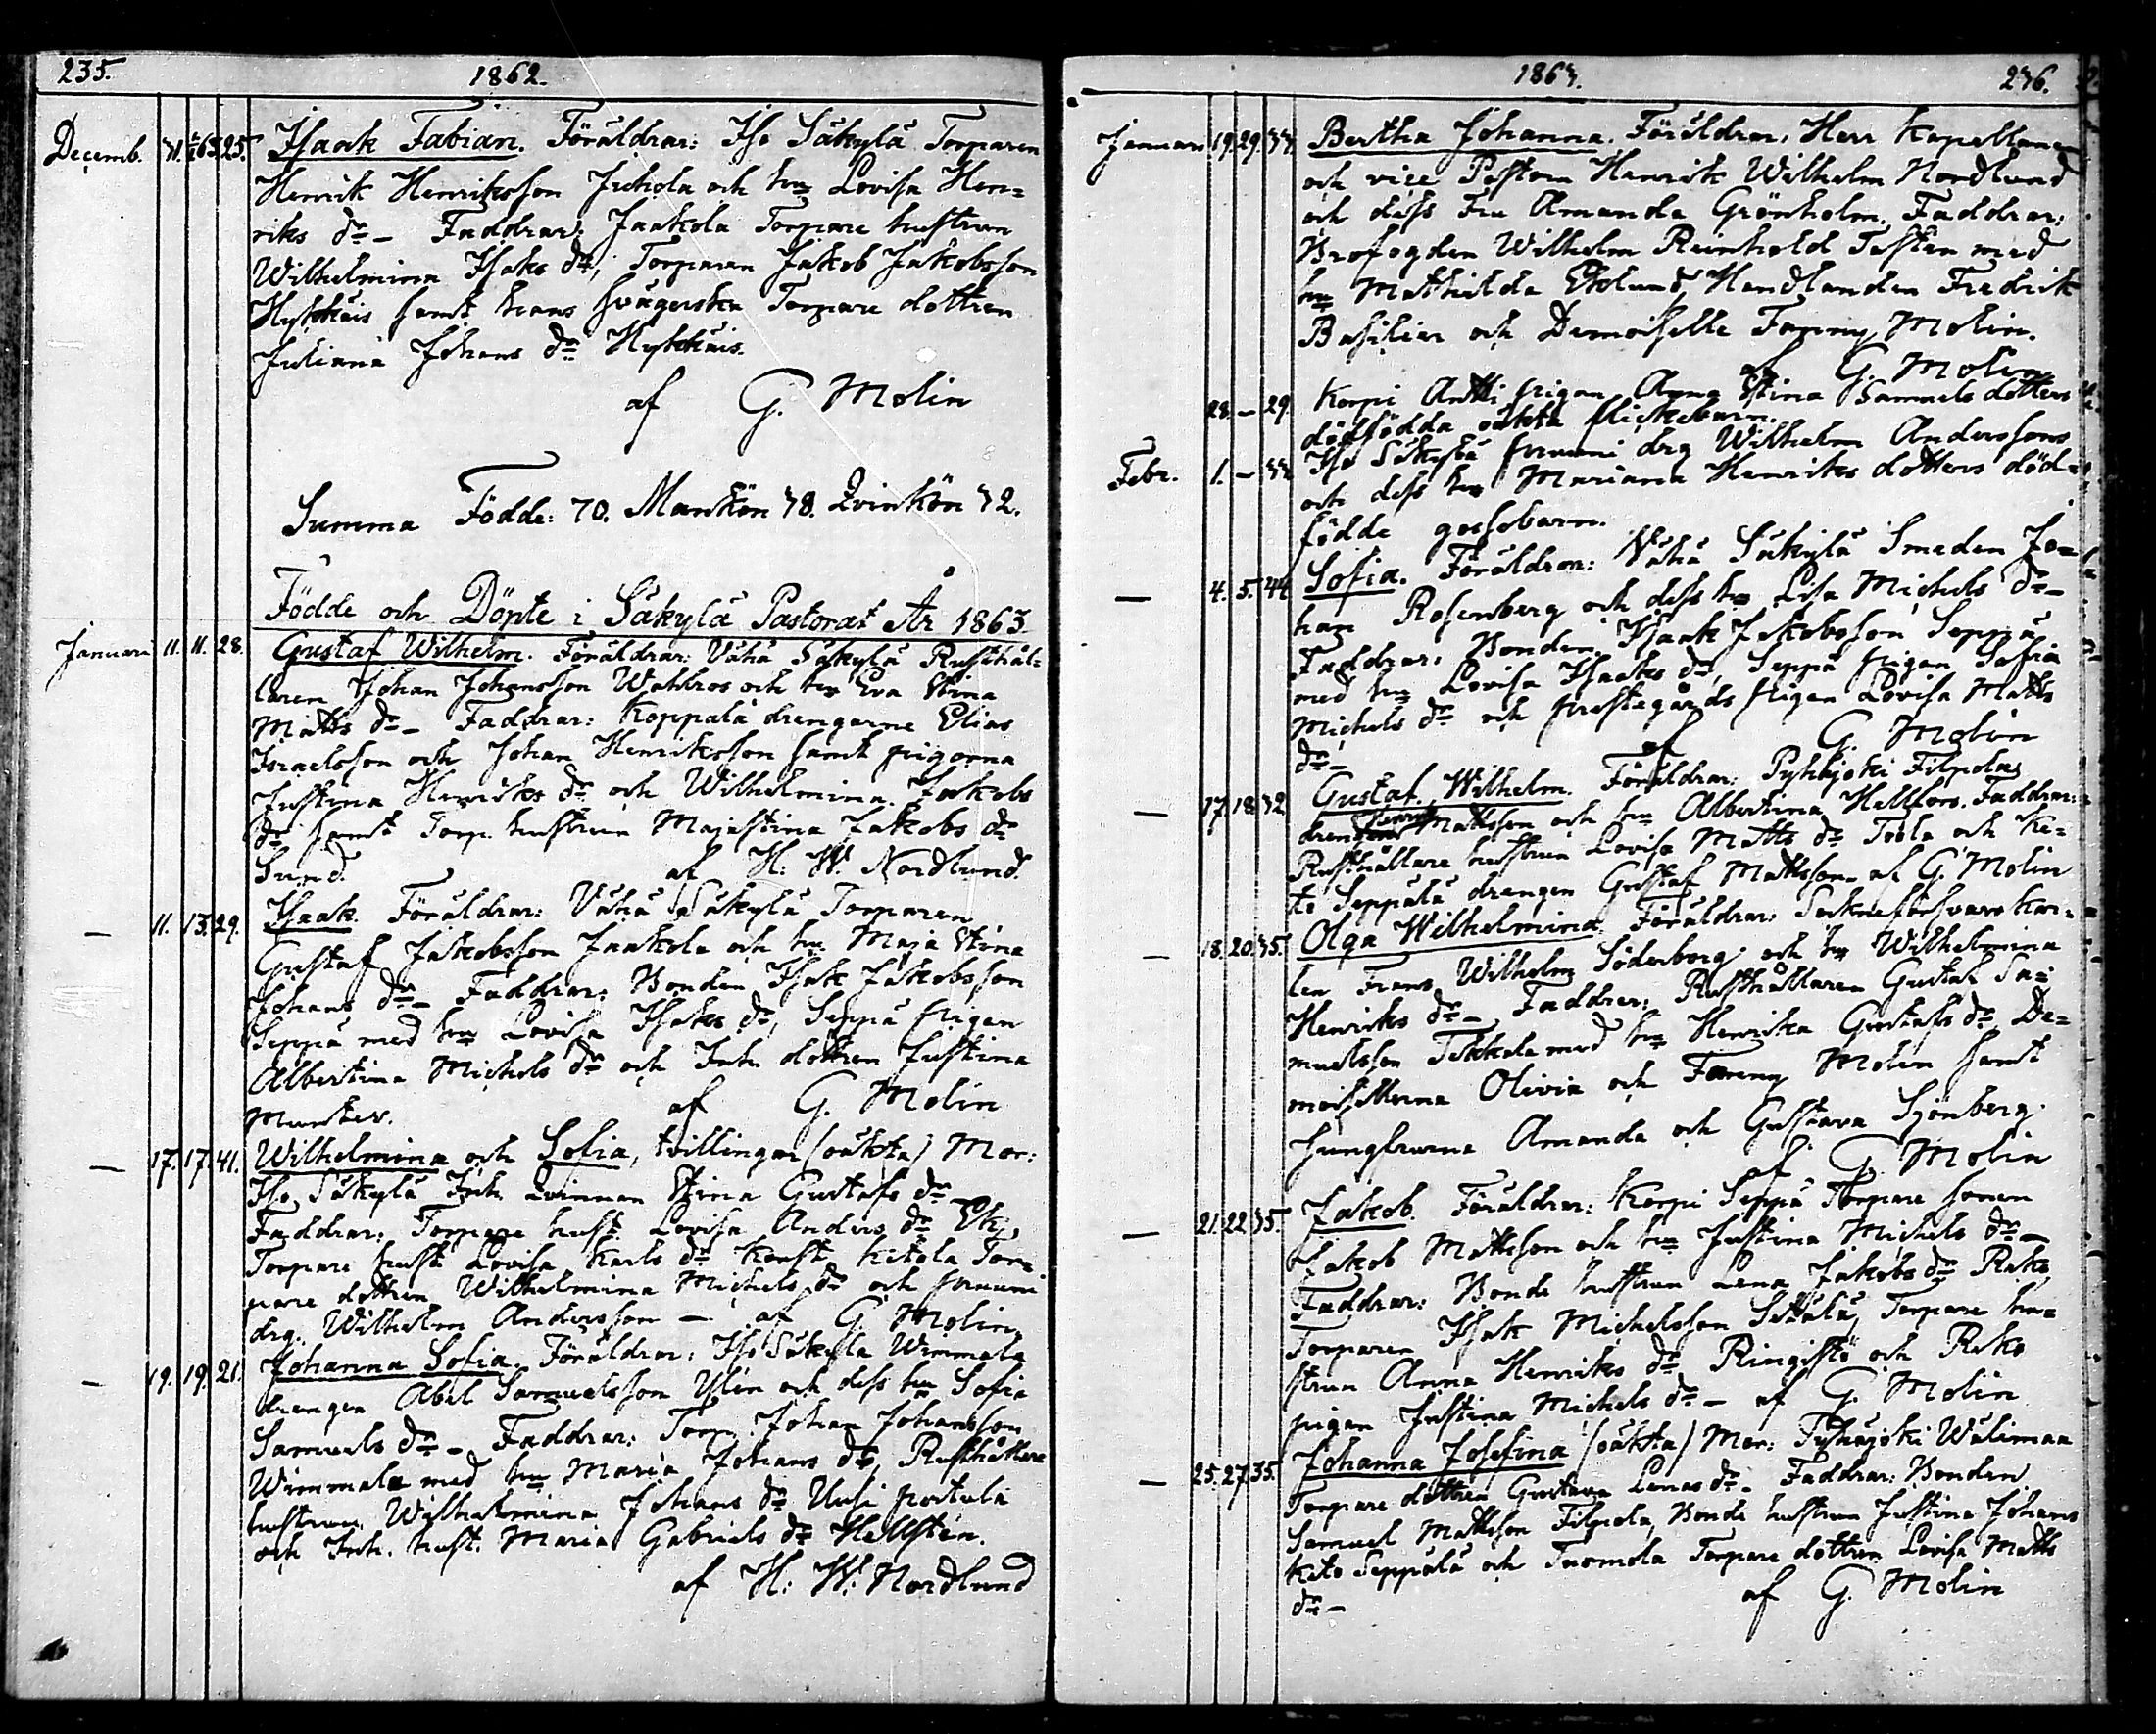 235.
1862.
Decemb. 31. 1/1 63. 25. Isaak Fabian. Föräldrar: Iso Säkylä Torparen
Henrik Henriksson Juhola och hu Lovisa Hen=
riks dr – Faddrar: Jaakola Torpare hustrun
Wilhelmina Isaks dr, Torparen Jakob Jakobsson
Hykkäis samt hans svägerska Torpare dottren
Juliana Johans dr Hykkäis.
af G. Molin
Summa Födde: 70. Mankön 38. Qvinkön 32.
Födde och Döpte i Säkylä Pastorat År 1863.
Januari 11. 11. 28. Gustaf Wilhelm. Föräldrar: Vähä Säkylä Rusthål=
laren Johan Johansson Wahlros och hu Eva Stina
Matts dr – Faddrar: Koppala drengarne Elias
Israelsson och Johan Henriksson samt pigorna
Justina Henriks dr och Wilhelmina Jakobs
dr samt Torp. hustrun Majastina Jakobs dr
Sund. af H: W. Nordlund.
– 11. 13. 29. Isaak. Föräldrar: Vähä Säkylä Torparen
Gustaf Jakobsson Jaakola och hu Maja Stina
Johans dr – Faddrar: Bonden Isak Jakobsson
Seppä med hu Lovisa Isaks dr, Seppä pigan
Albertina Michels dr och Inh. dottren Justina
Munster. af G. Molin
– 17. 17. 41. Wilhelmina och Sofia, tvillingar (oäkta) Mor:
Iso Säkylä Inh. Qvinnan Stina Gustafs dr
Faddrar: Torpare hust. Lovisa Anders dr Eki,
Torpare hust. Lovisa Karls dr Kitola Tor=
pare dottren Wilhelmina Michels dr och
drg. Wilhelm Andersson – af G. Molin
– 19. 19. 21. Johanna Sofia. Föräldrar: Iso Säkylä Wimmala
drengen Abel Samuelsson Ylén och dess hu Sofia
Samuels dr – Faddrar: Torp. Johan Johansson
Wimmala med hu Maria Johans dr, Rusthållare
hustrun Wilhelmina Johans dr Uusi
och Inh. hust. Maria Gabriels dr Hellstén.
af H: W: Nordlund
1863.
236.
Januari 19. 29. 33. Bertha Johanna. Föräldrar: Herr Kapellanen
och vice Pastorn Henrik Wilhelm Nordlund
och dess Fru Amanda Grönholm. Faddrar:
Brofogden Wilhelm Reinhold Tastén med
hu Mathilda Eklund, Handlanden Fredrik
Basilier och Demoiselle Fanny Molin.
af G. Molin
28. – 29. Korpi Antti pigan Anna Stina Samuels dotters
dödfödda oäkta flickebarn.
Febr. 1. – 33. Iso Säkylä drg Wilhelm Anderssons
och dess hu Mariana Henriks dotters död=
födde gossebarn.
– 4. 5. 44. Sofia. Föräldrar: Vähä Säkylä Smeden Jo=
han Rosenberg och dess hu Lisa Michels dr –
Faddrar: Bonden Isaak Jakobsson Seppä
med hu Lovisa Isaaks dr, Seppä pigan Sofia
Michels dr och prestegårds pigan Lovisa Matts
dr – af G. Molin
– 17. 18. 32. Gustaf Wilhelm. Föräldrar: Pyhäjoki Filpola
drengen Henrik Mattsson och hu Albertina Hellfors. Faddrar:
Rusthållare hustrun Lovisa Matts dr Toola och Ke=
to Seppälä drengen Gustaf Mattsson – af G. Molin
– 18. 20. 35. Olga Wilhelmina. Föräldrar: Sockneförsvars kar=
len Frans Wilhelm Söderborg och hu Wilhelmina
Henriks dr – Faddrar: Rusthållaren Gustaf Sa=
muelsson Tekkala med hu Henrika Gustafs dr De=
moisellerna Olivia och Fanny Molin samt
Jungfrurna Amanda och Gustava Sjönberg.
af G. Molin
– 21. 22. 35. Jakob. Föräldrar: Korpi Seppä Torpare sonen
Jakob Mattsson och hu Justina Michels dr –
Faddrar: Bonde hustrun Lena Jakobs dr Reko,
Torparen Isak Michelsson Torpare hu=
strun Anna Henriks dr Ringistö och Reko
pigan Justina Michels dr – af G. Molin
– 25. 27. 35. Johanna Josefina (oäkta) Mor: Pyhäjoki Wälimaa
Torpare dottren Gustava Lenas dr – Faddrar: Bonden
Samuel Mattsson Filpola, Bonde hustrun Justina Johans
Keto Seppälä och Tuomola Torpare dottren Lovisa Matts
dr – af G. Molin